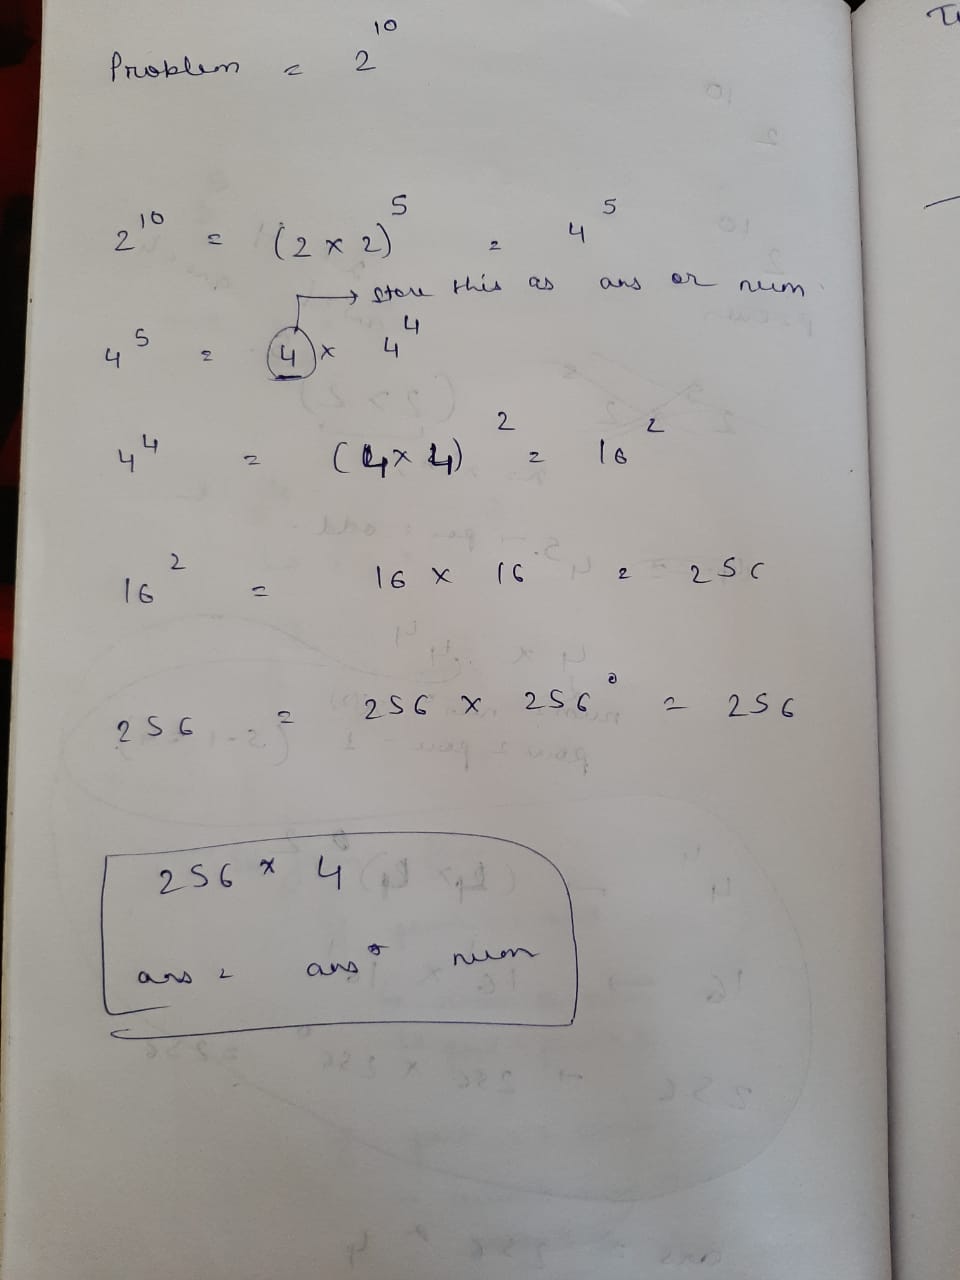 Problem = 2^10
2^10 = (2 x 2)^5 = 4^5
→ store this as ans or num
4^5 = 4 x 4^4
4^4 = (4x4)^2 = 16^2
16^2 = 16 x 16 = 256
256 = 256 x 256^0 = 256
256 x 4
ans = ans * num